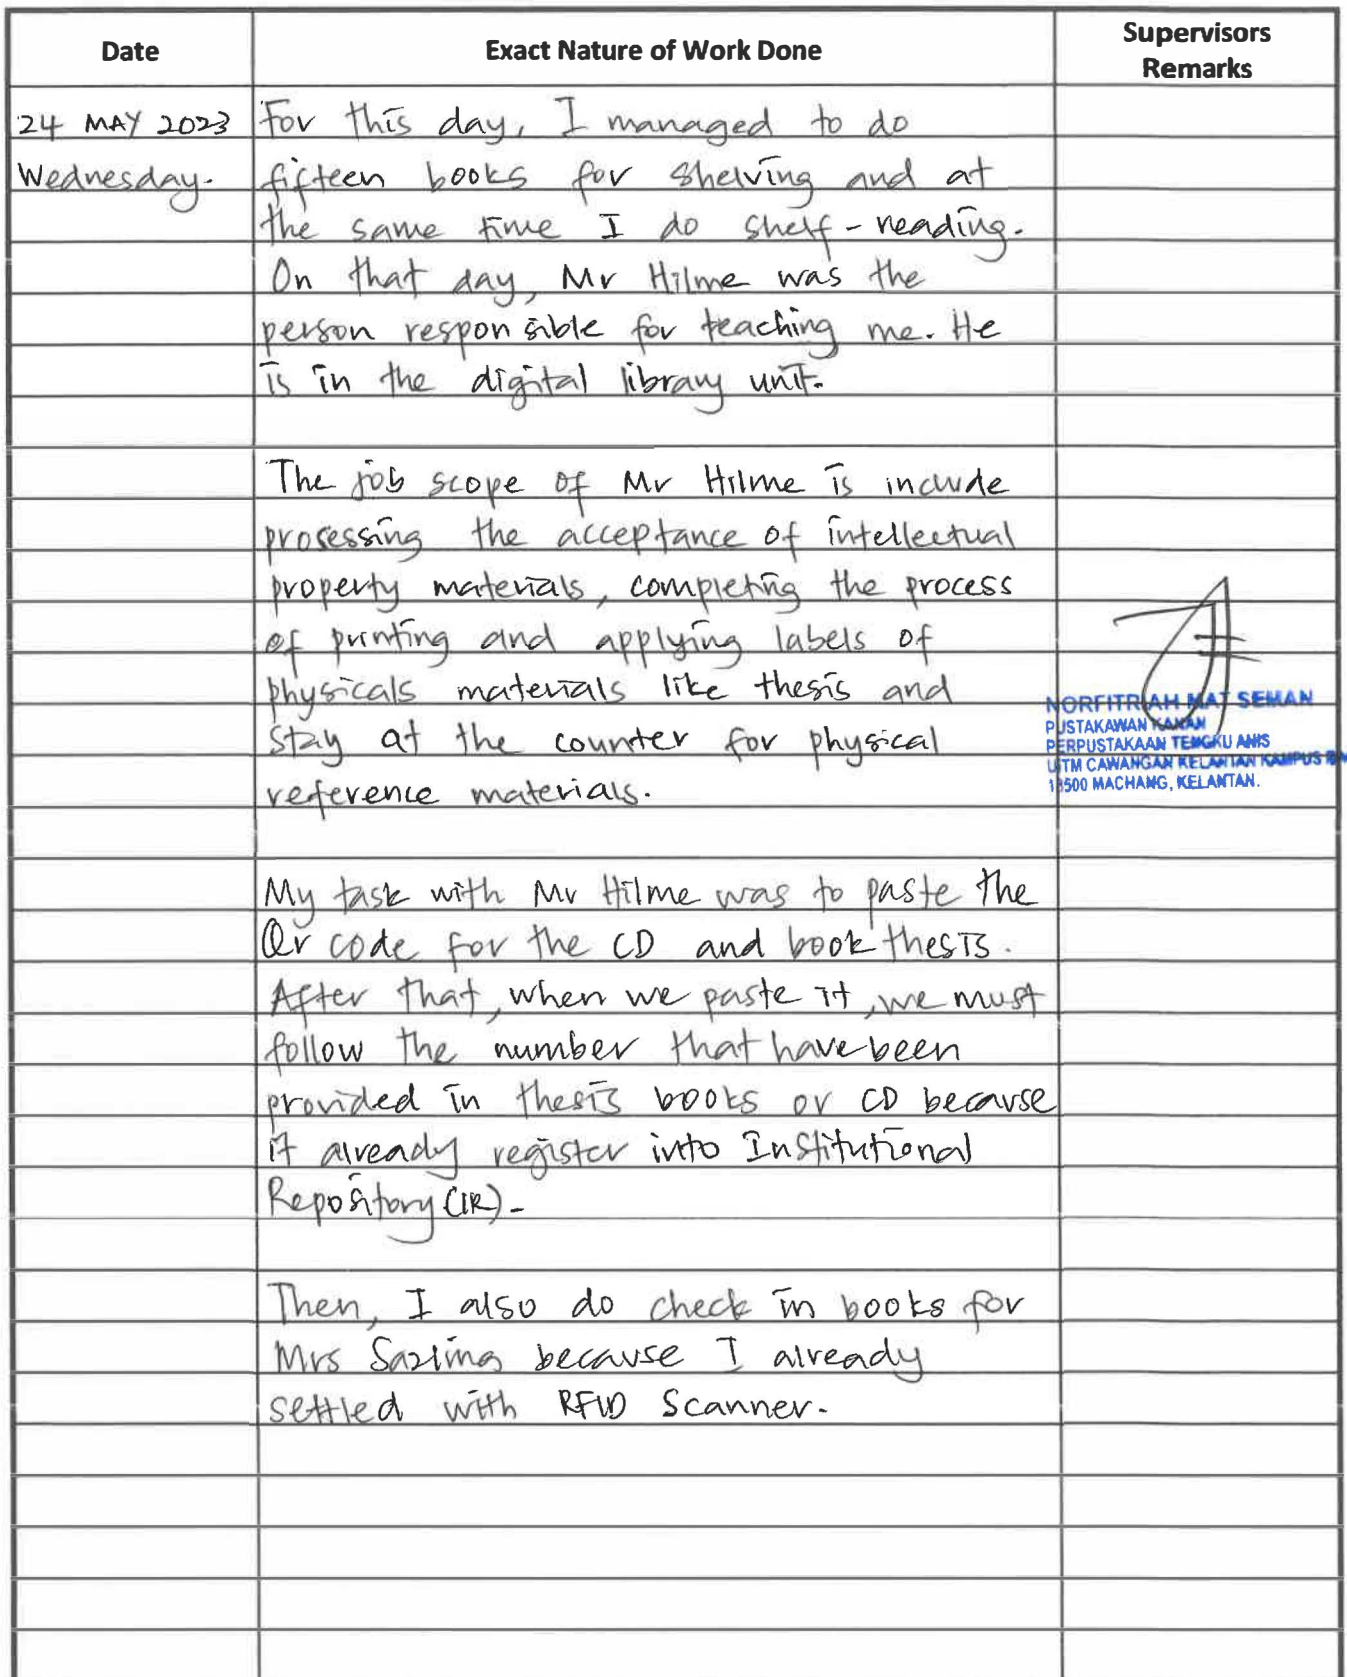 Date
Exact Nature of Work Done
Supervisors
Remarks
24 MAY 2023
Wednesday.
For this day, I managed to do
fifteen books for shelving and at
the same time I do shelf-reading.
On that day, Mr Hilme was the
person responsible for teaching me. He
is in the digital library unit.
The job scope of Mr Hilme is include
prosessing the acceptance of intellectual
property materials, completing the process
of printing and applying labels of
physicals materials like thesis and
stay at the counter for physical
reference materials.
NORFITRIAH MAT SEMAN
PUSTAKAWAN KANAN
PERPUSTAKAAN TENGKU ANIS
UiTM CAWANGAN KELANTAN KAMPUS
18500 MACHANG, KELANTAN.
My task with Mr Hilme was to paste the
Qr code for the CD and book thesis.
After that, when we paste it, we must
follow the number that have been
provided in thesis books or CD because
it already register into Institutional
Repository (IR).
Then, I also do check in books for
Mrs Sazlina because I already
settled with RFID Scanner.